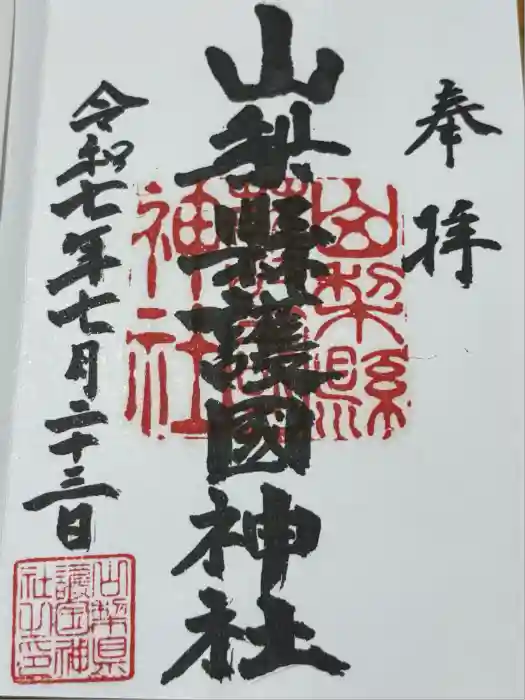 奉拝
山梨縣護國神社
令和七年七月二十三日
山梨縣
護國
神社
山梨県
護国神
社之印